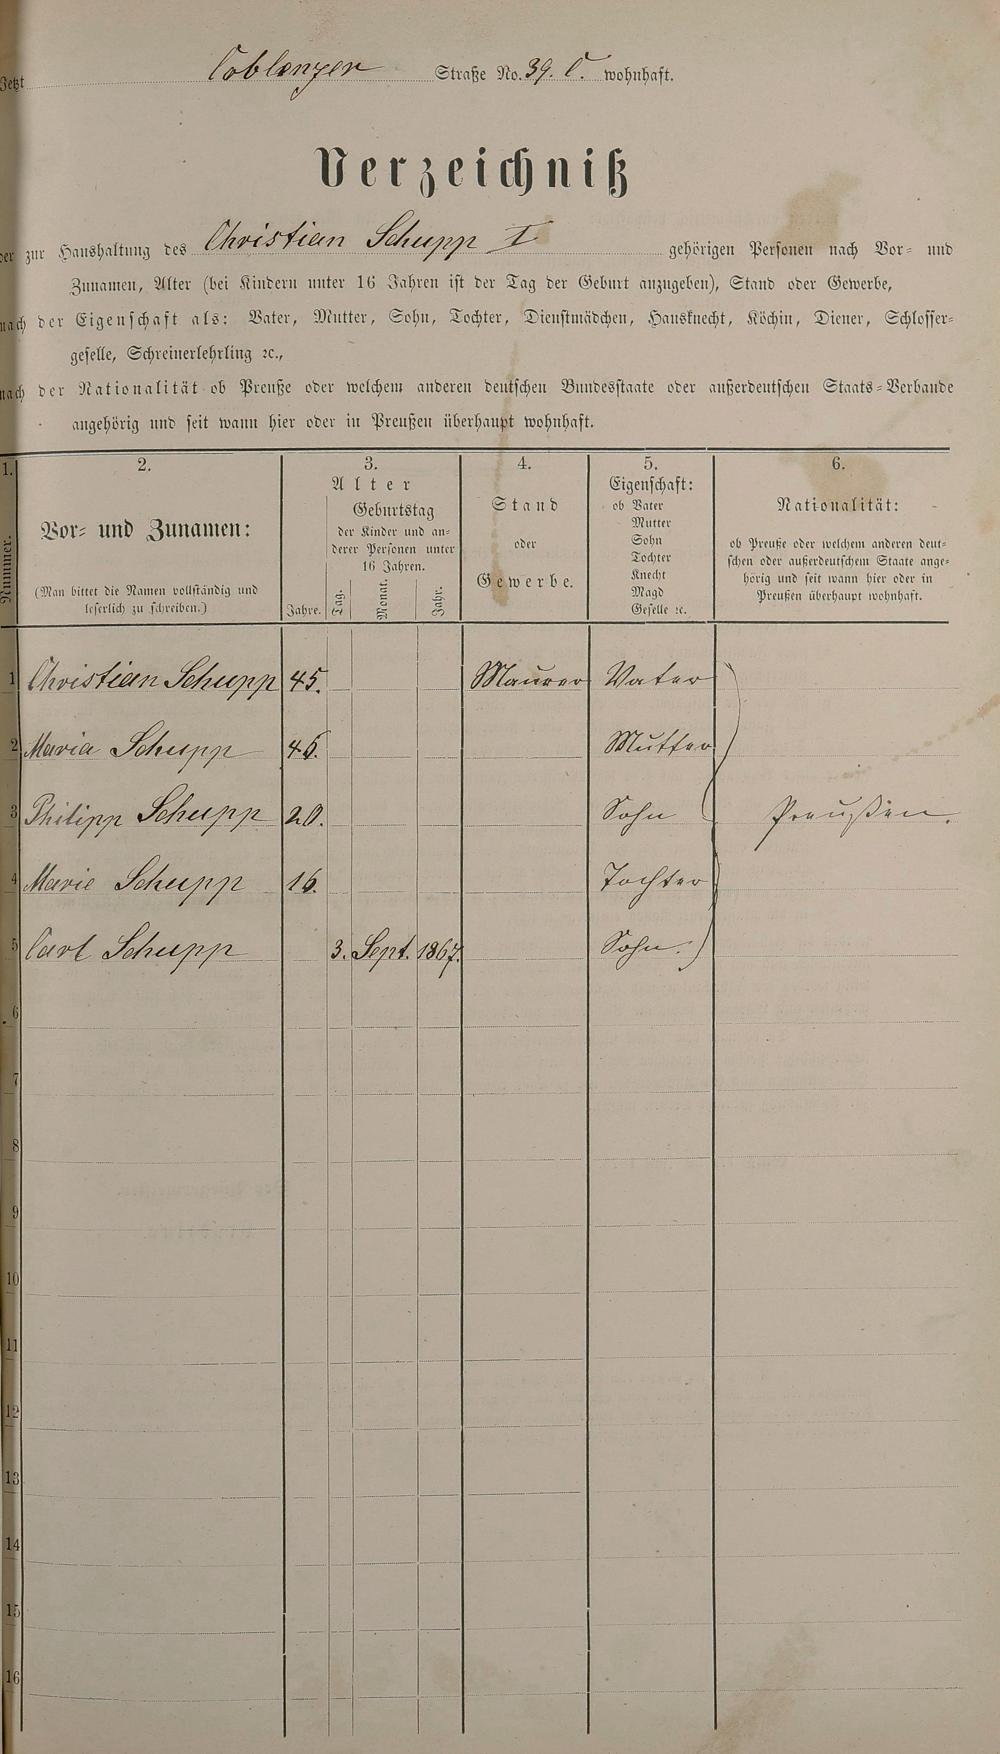 Jetzt Coblenzer Straße No. 39. C. wohnhaft.
Verzeichniß
der zur Haushaltung des Christian Schupp I gehörigen Personen nach Vor- und
Zunamen, Alter (bei Kindern unter 16 Jahren ist der Tag der Geburt anzugeben), Stand oder Gewerbe,
nach der Eigenschaft als: Vater, Mutter, Sohn, Tochter, Dienstmädchen, Hausknecht, Köchin, Diener, Schlosser-
geselle, Schreinerlehrling ꝛc.,
nach der Nationalität ob Preuße oder welchem anderen deutschen Bundesstaate oder außerdeutschen Staats-Verbande
angehörig und seit wann hier oder in Preußen überhaupt wohnhaft.
1.
Nummer.
2.
Vor- und Zunamen:
(Man bittet die Namen vollständig und
leserlich zu schreiben.)
3.
Alter
Jahre.
Geburtstag
der Kinder und an-
derer Personen unter
16 Jahren.
Tag.
Monat.
Jahr.
4.
Stand
oder
Gewerbe.
5.
Eigenschaft:
ob Vater
Mutter
Sohn
Tochter
Knecht
Magd
Geselle ꝛc.
6.
Nationalität:
ob Preuße oder welchem anderen deut-
schen oder außerdeutschem Staate ange-
hörig und seit wann hier oder in
Preußen überhaupt wohnhaft.
1 Christian Schupp 45. Maurer Vater
2 Maria Schupp 46. Mutter
3 Philipp Schupp 20. Sohn Preußen.
4 Marie Schupp 16. Tochter
5 Carl Schupp 3. Sept. 1867. Sohn.
6
7
8
9
10
11
12
13
14
15
16